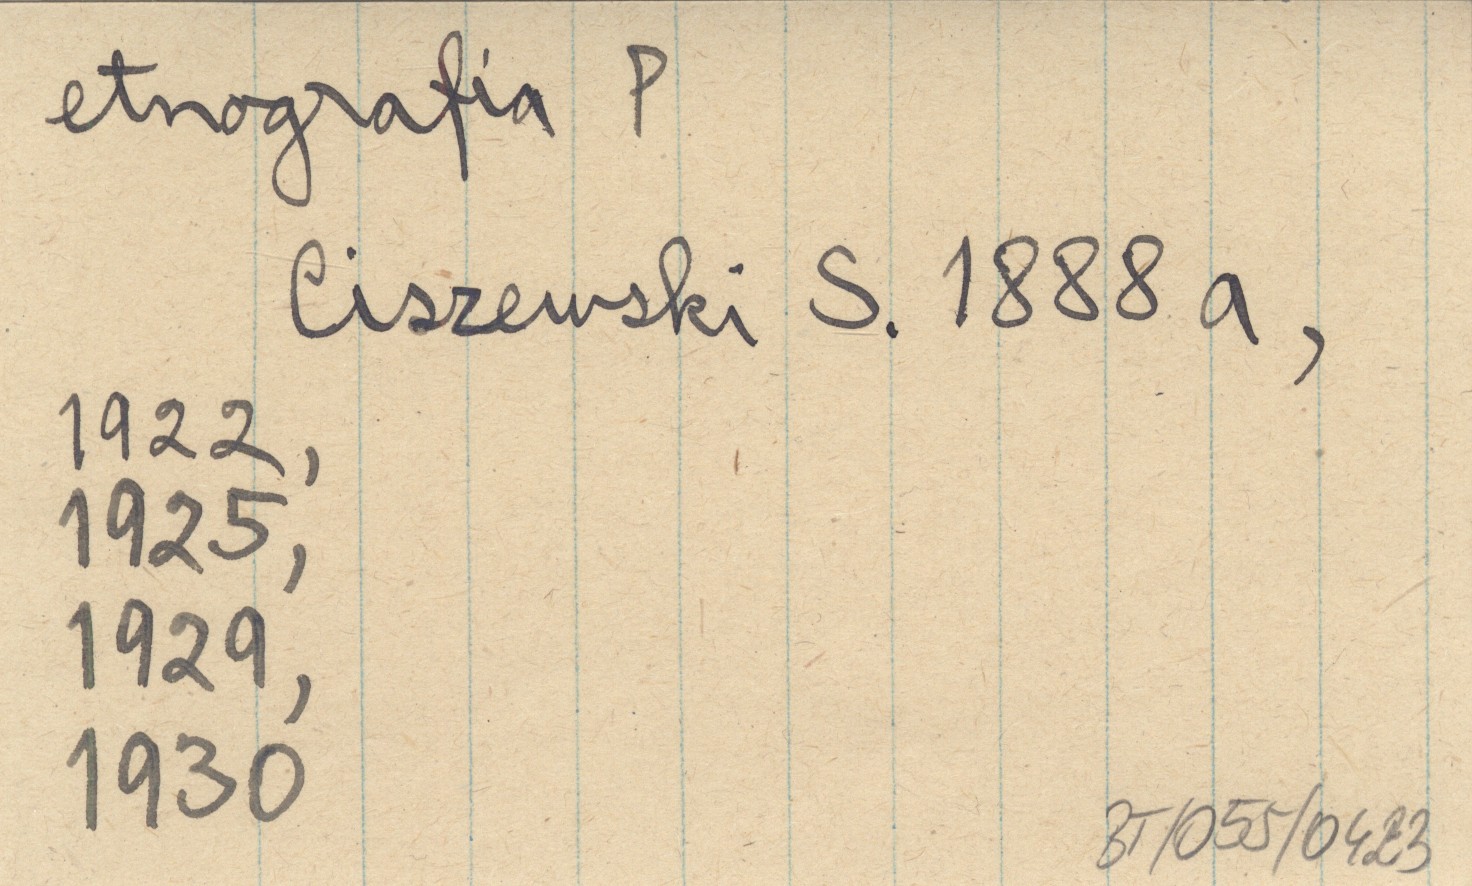 etnografia P
Ciszewski S. 1888 a,
1922,
1925,
1929,
1930
BT/055/0423